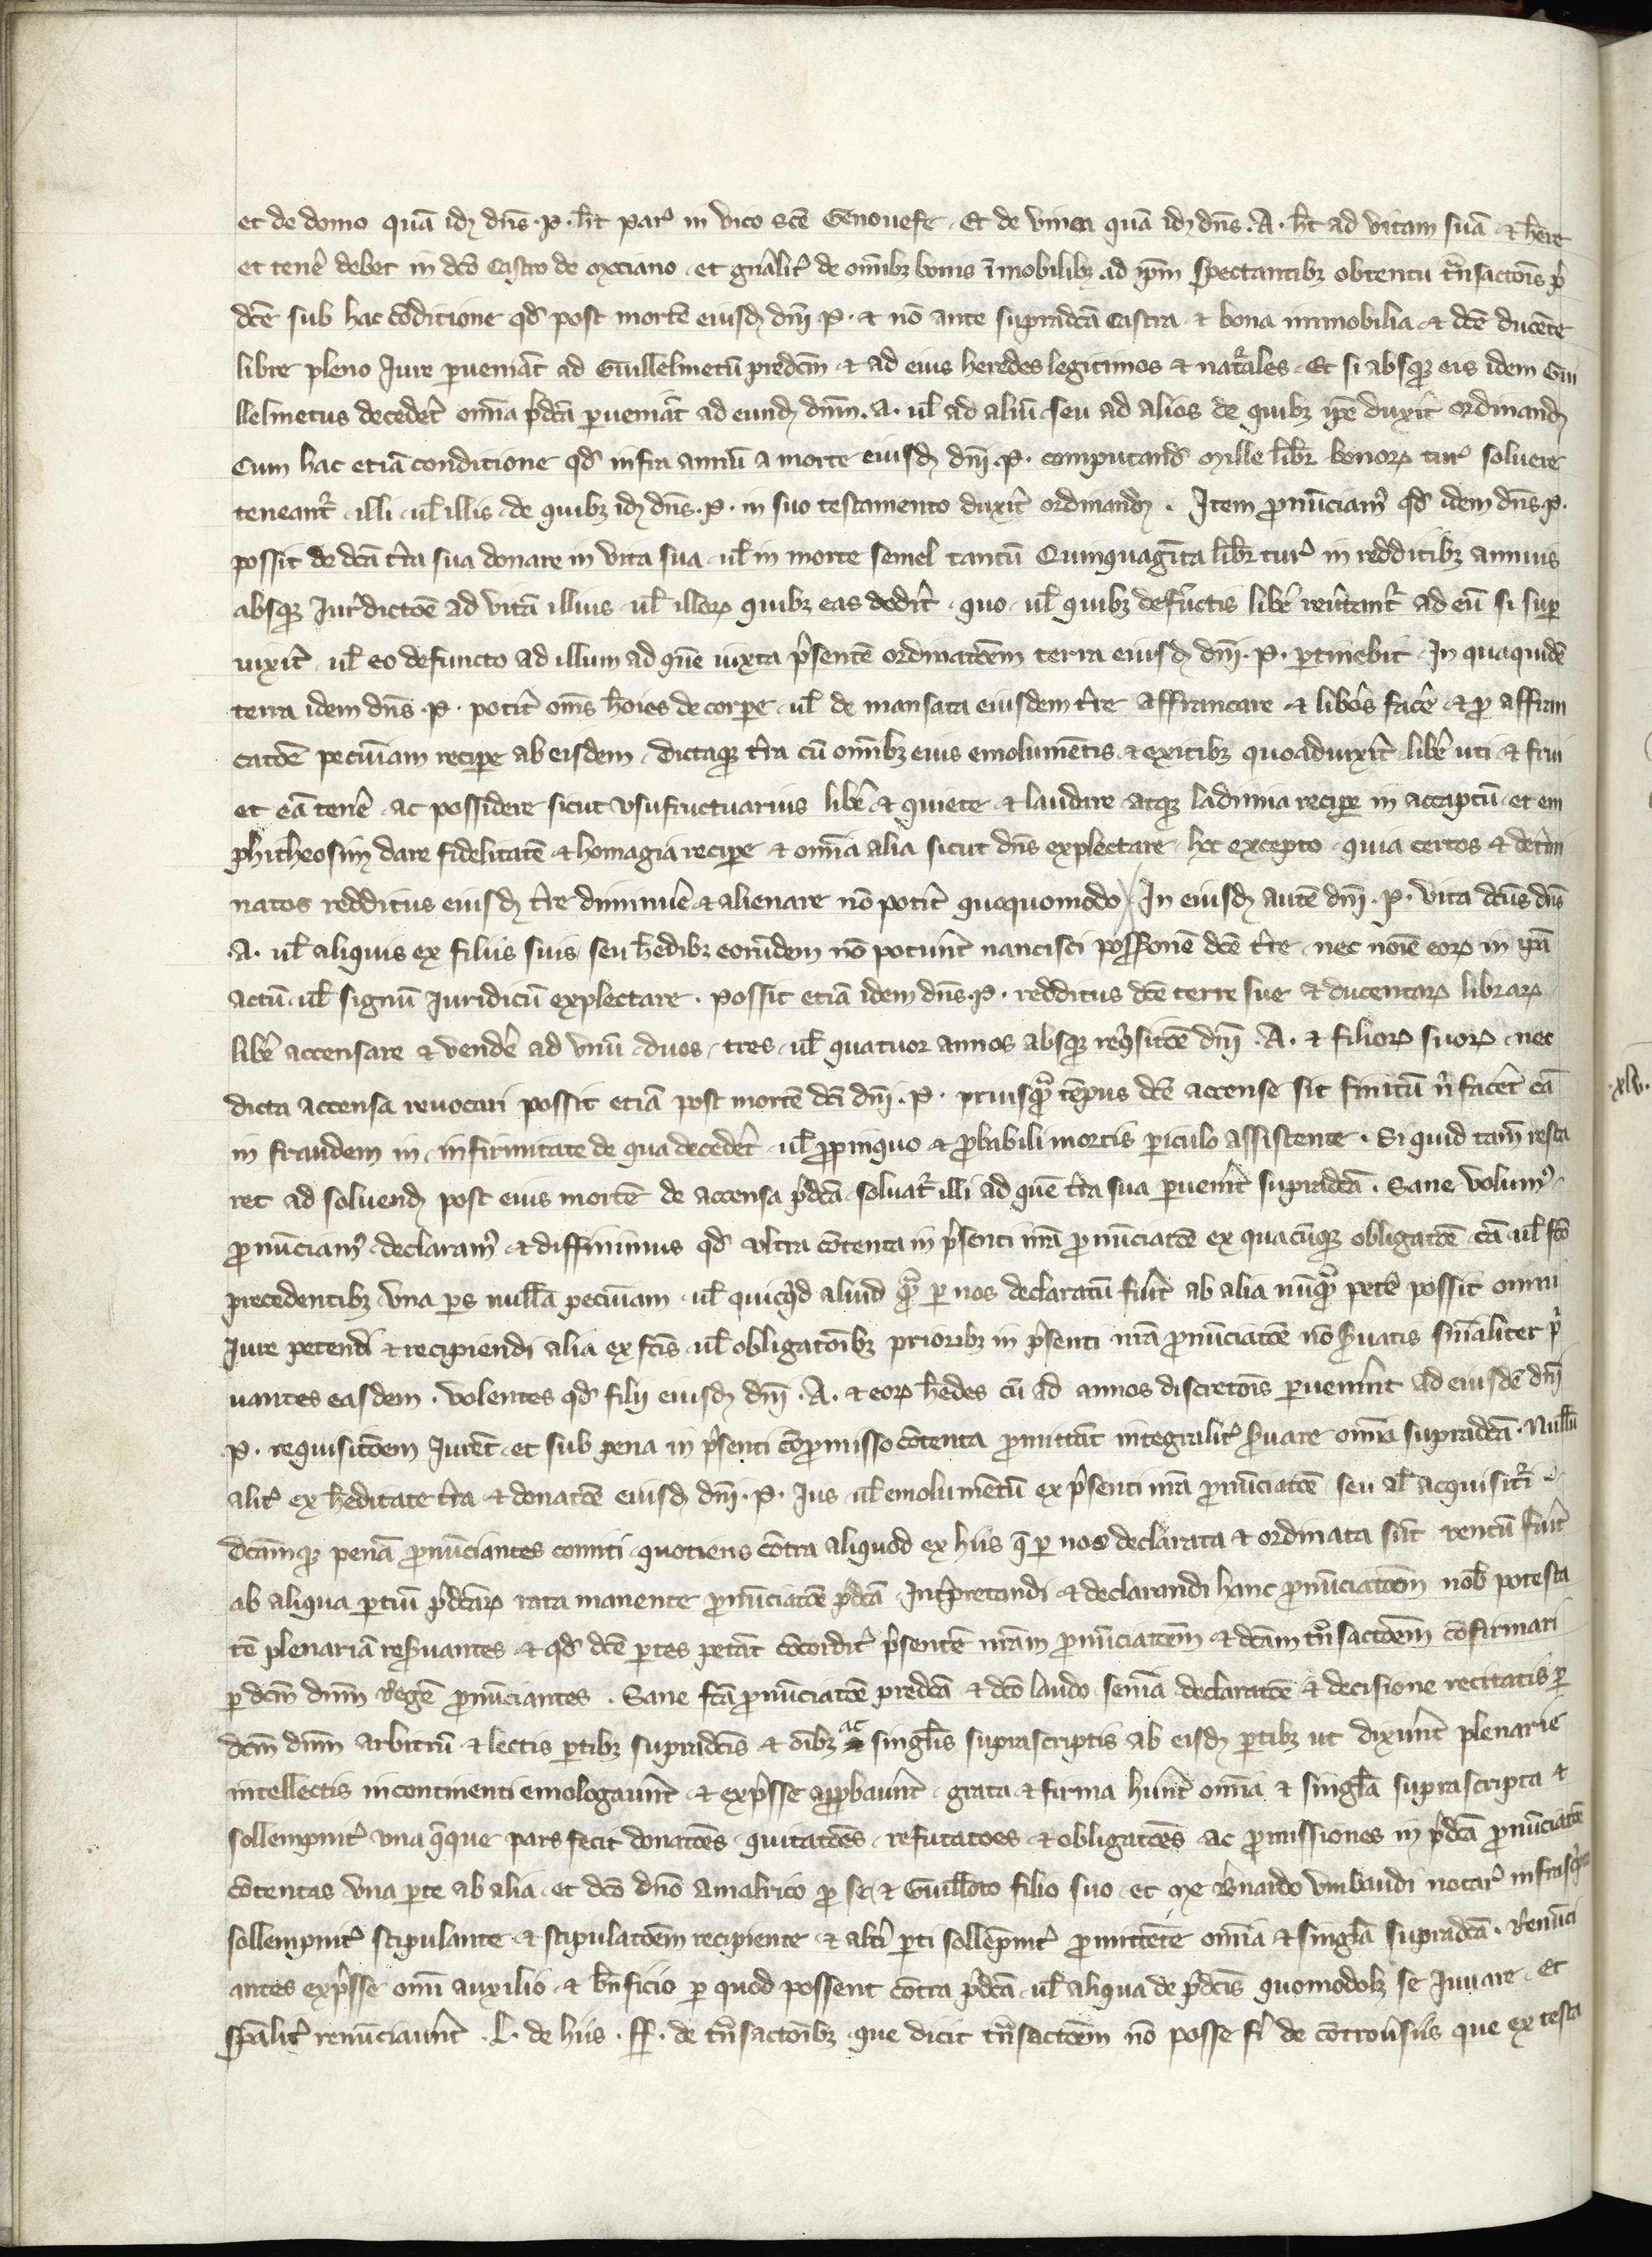 et de domo quā idꝫ dn̄s .P. hēt par̉ in vico sc̄e Genouefe . Et de vinea quā idꝫ dn̄s .A. hēt ad vitam suā & hēre
et tenē debet in dc̄o castro de Mociano . et gn̄alit̉ de om̄ibꝫ bonis īmobilibꝫ ad ip̄m spectantibꝫ obtentu tn̄sactōis p̄
dc̄e sub hac cōditione qd̄ post mortē eiusdꝫ dn̄i .P. & nō ante supradc̄a castra & bona inmobilia & dc̄e ducēte
libre pleno Iure ꝑueniāt ad Guillelmetū predc̄m & ad eius heredes legitimos & natʳales . Et si absqꝫ eis idem Gui
llelmetus decedet̉ om̄ia p̄dc̄a ꝑueniāt ad eundꝫ dn̄m .A. ul̄ ad aliū seu ad alios de quibꝫ ip̄e duxit̉ ordinandꝫ
Cum hac etiā conditione qd̄ infra annū a morte eiusdꝫ dn̄i .P. computand̄ Mille libr̄ bonoꝝ tur̉ soluere
teneant̉ illi ul̄ illis de quibꝫ idꝫ dn̄s .P. in suo testamento duxit̉ ordinandꝫ . Item ꝓnūciam̉ qd̄ idem dn̄s .P.
possit de dc̄a tr̄a sua donare in vita sua ul̄ in morte semel tantū Quinquagīta libr̄ tur̉ in redditibꝫ annuis
absqꝫ Iur̉dictōe ad vitā illius ul̄ illoꝝ quibꝫ eas dedit̉ . quo ul̄ quibꝫ defūctis libē reūtant̉ ad eū si suꝑ
uixit̉ . ul̄ eo defuncto ad illum ad quē iuxta p̄sentē ordinatōem terra eiusdꝫ dn̄i .P. ꝑtinebit . In quaquidē
terra idem dn̄s .P. potit̉ om̄s hōies de corꝑe ul̄ de mansata eiusdem tr̄e affrancare & libōs facē & ꝓ affran
catōe pecūiam reciꝑe ab eisdem . Dictaqꝫ tr̄a cū om̄ibꝫ eius emolumētis & exitibꝫ quoaduixit̉ libē uti & frui
et eā tenē ac possidere sicut vsufructuarius libē & quiete & laudare atqꝫ ladimia reciꝑe in accaptū et em
phitheosim dare fidelitatē & homagia reciꝑe & om̄ia alia sicut dn̄s explectare . hoc excepto . quia certos & det̉mi
natos redditus eiusdꝫ tr̄e diminuē & alienare nō potit̉ quoquomodo In eiusdꝫ autē dn̄i .P. vita dc̄us dn̄s
.A. ul̄ aliquis ex filiis suis seu hēdibꝫ eorūdem nō potunt̉ nancisci possōnē dc̄e tr̄e . nec noīe eoꝝ in ip̄a
actū ul̄ signū Iuridicū explectare . Possit etiā idem dn̄s .P. redditus dc̄e terre sue & ducentaꝝ libraꝝ
libē accensare & vendē ad vnū duos . tres ul̄ quatuor annos absqꝫ req̉sitōe dn̄i .A. & filioꝝ suoꝝ . nec
dicta accensa reuocari possit etiā post mortē dc̄i dn̄i .P. priusqᵃ̄ tēpus dc̄e accense sit finitū n̄ facet̉ eā
in fraudem in infirmitate de qua decedet̉ ul̄ ꝓpinquo & ꝓbabili mortis ꝑiculo assistente . Si quid tam̄ resta
ret ad soluendꝫ post eius mortē de accensa p̄dc̄a soluat̉ illi ad quē tr̄a sua ꝑuenit̉ supradc̄a . Sane volum̉
ꝓnūciam̉ declaram̉ & diffinimus qd̄ vltra cōtenta in p̄senti nr̄a ꝓnūciatōe ex quacūqꝫ obligatōe cā ul̄ fc̄o
precedentibꝫ vna ꝑs null̄a pecūiam ul̄ quicq̉d aliud qᵃ̄ ꝑ nos declaratū fuit̉ ab alia nūqᵃ̄ petē possit omni
Iure petendi & recipiendi alia ex fc̄is ul̄ obligatōibꝫ prioribꝫ in p̄senti nr̄a ꝓnūciatōe nō s̄uatis sn̄ialiter p̉
uantes easdem . Volentes qd̄ filij eiusdꝫ dn̄i .A. & eoꝝ hēdes cū ad annos discretōis ꝑuenint̉ ad eiusdē dn̄i
.P. requisitōem Iurēt . et sub pena in p̄senti cōꝓmisso cōtenta ꝓmittāt integralit̉ s̄uare om̄ia supradc̄a . Null̄u
alit̉ ex hēditate tr̄a & donatōe eiusdꝫ dn̄i .P. Ius ul̄ emolumētū ex p̄senti nr̄a ꝓnūciatōe seu al̄ acquisitʳi
dc̄amqꝫ penā ꝓnūciantes comiti quotiens cōtra aliquod ex hiis q̄ ꝑ nos declarata & ordinata sūt uentū fuit̉
ab aliqua ꝑtiū p̄dc̄aꝝ rata manente ꝓnūciatōe p̄dc̄a . Intꝑretandi & declarandi hanc ꝓnūciatōem nob̄ potesta
tē plenariā res̄uantes & qd̄ dc̄e ꝑtes petāt cōcordit̉ p̄sentē nr̄am ꝓnūciatōem & dc̄am tn̄sactōem cōfirmari
ꝑ dc̄m dn̄m Regē ꝓnūciantes . Sane fc̄a ꝓnūciatōe predc̄a & dc̄o laudo sen̄ia declaratōe & decisione recitatis ꝑ
dc̄m dn̄m arbitrū & lectis ꝑtibꝫ supradc̄is & oībꝫ ac singl̄is suprascriptis ab eisdꝫ ꝑtibꝫ ut dixunt̉ plenarie
intellectis incontinenti emologaunt̉ & exp̄sse aꝓbaunt̉ . grata & firma hunt̉ om̄ia & singl̄a suprascripta &
sollempnit̉ vna q̄que pars fecit donatōes quitatōes . refutatoes & obligatōes ac ꝓmissiones in p̄dc̄a ꝓnūciatōe
cōtentas vna ꝑte ab alia . et dc̄o dn̄o Amalrico ꝓ se & Guill̄oto filio suo . et me B̄nardo Vmbaudi notar̉ infrascͥpto
sollempnit̉ stipulante & stipulatōem recipiente & alt̉i ꝑti sollēpnit̉ ꝓmittēte om̄ia & singl̄a supradc̄a . Renūci
antes exp̄sse om̄i auxilio & bn̄ficio ꝑ quod possent cōtra p̄dc̄a ul̄ aliqua de p̄dc̄is quomodolꝫ se Iuuare . Et
sp̄alit̉ renūciaunt̉ .L. de hiis . ff. de tn̄sactōibꝫ . que dicit tn̄sactōem nō posse fỉ de cōtroūsiis que ex testa
.xlv.